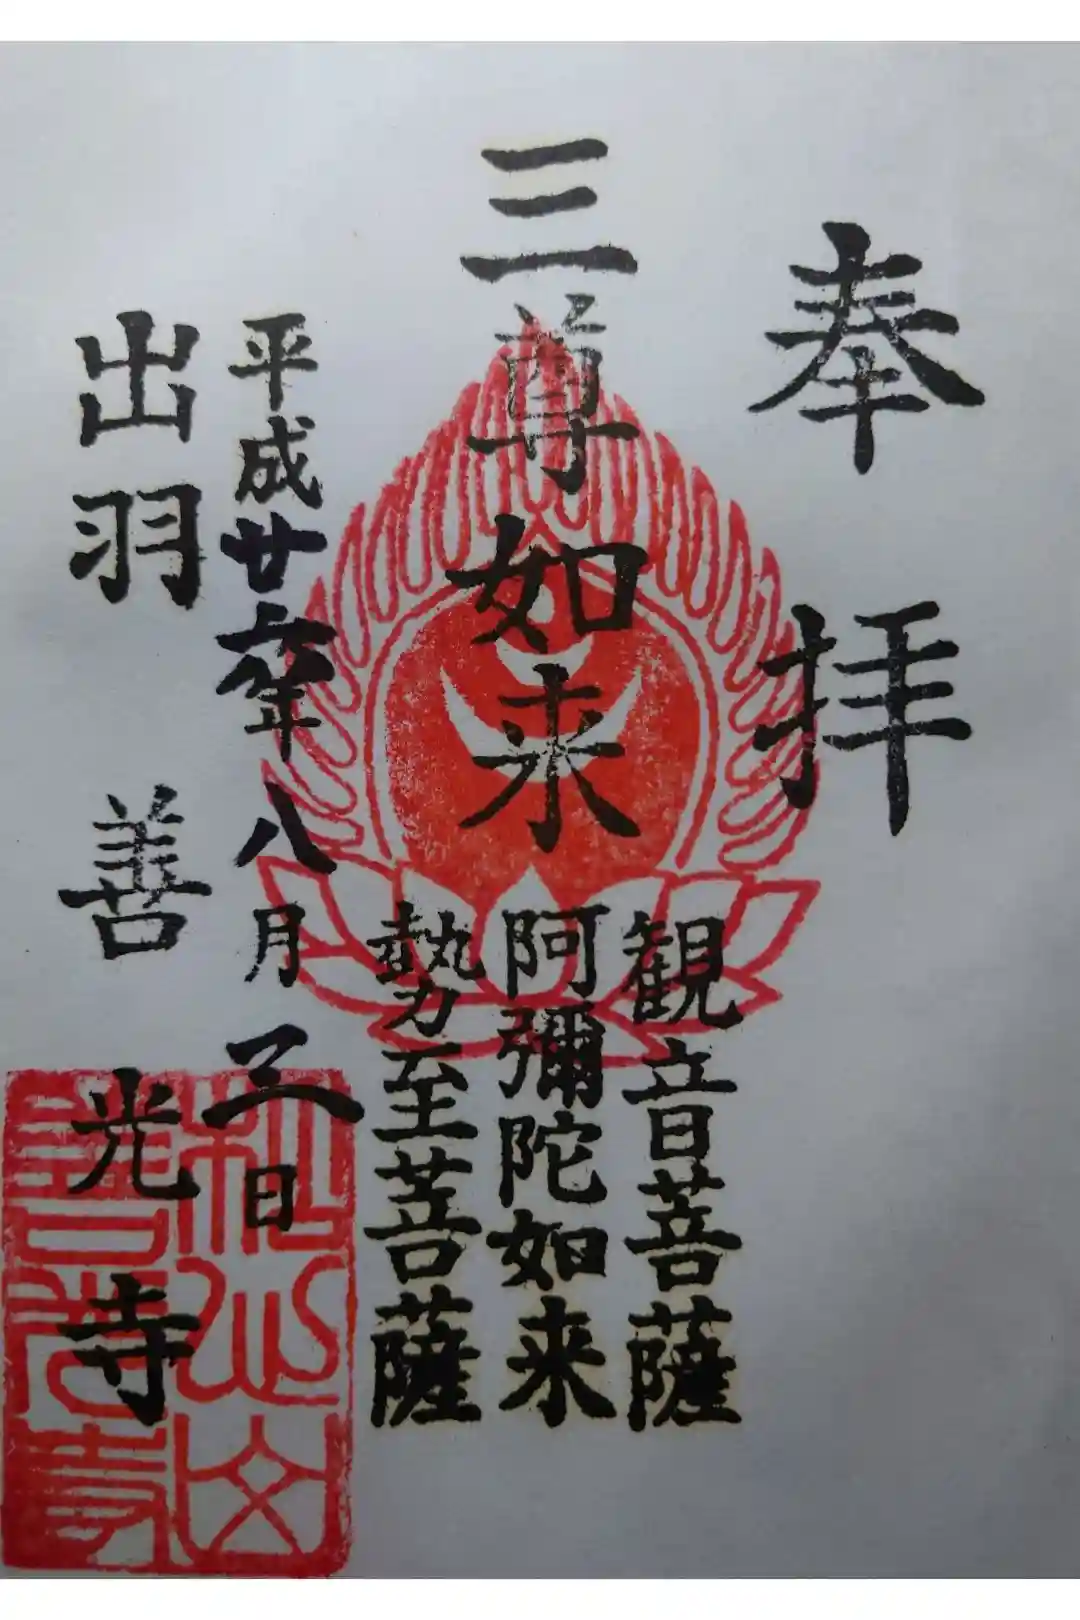 奉拝
三尊如来
観音菩薩
阿彌陀如来
勢至菩薩
平成廿六年八月三日
出羽善光寺
善光寺